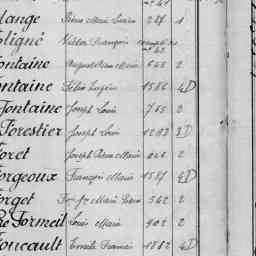 lange Pierre Marie Lucien 287 1
oligné Victor François
ontaine Auguste Pierre Marie 648 2
ontaine Félix Eugène 1586 4D
Fontaine Joseph Louis 755 2
Forestier Joseph Louis 1283 3D
Foret Joseph Pierre Marie 646 2
orgeoux François Marie 1587 4D
orget Marie 562 2
Formeil Louis Marie 902 2
oucault Emile François 1882 4D